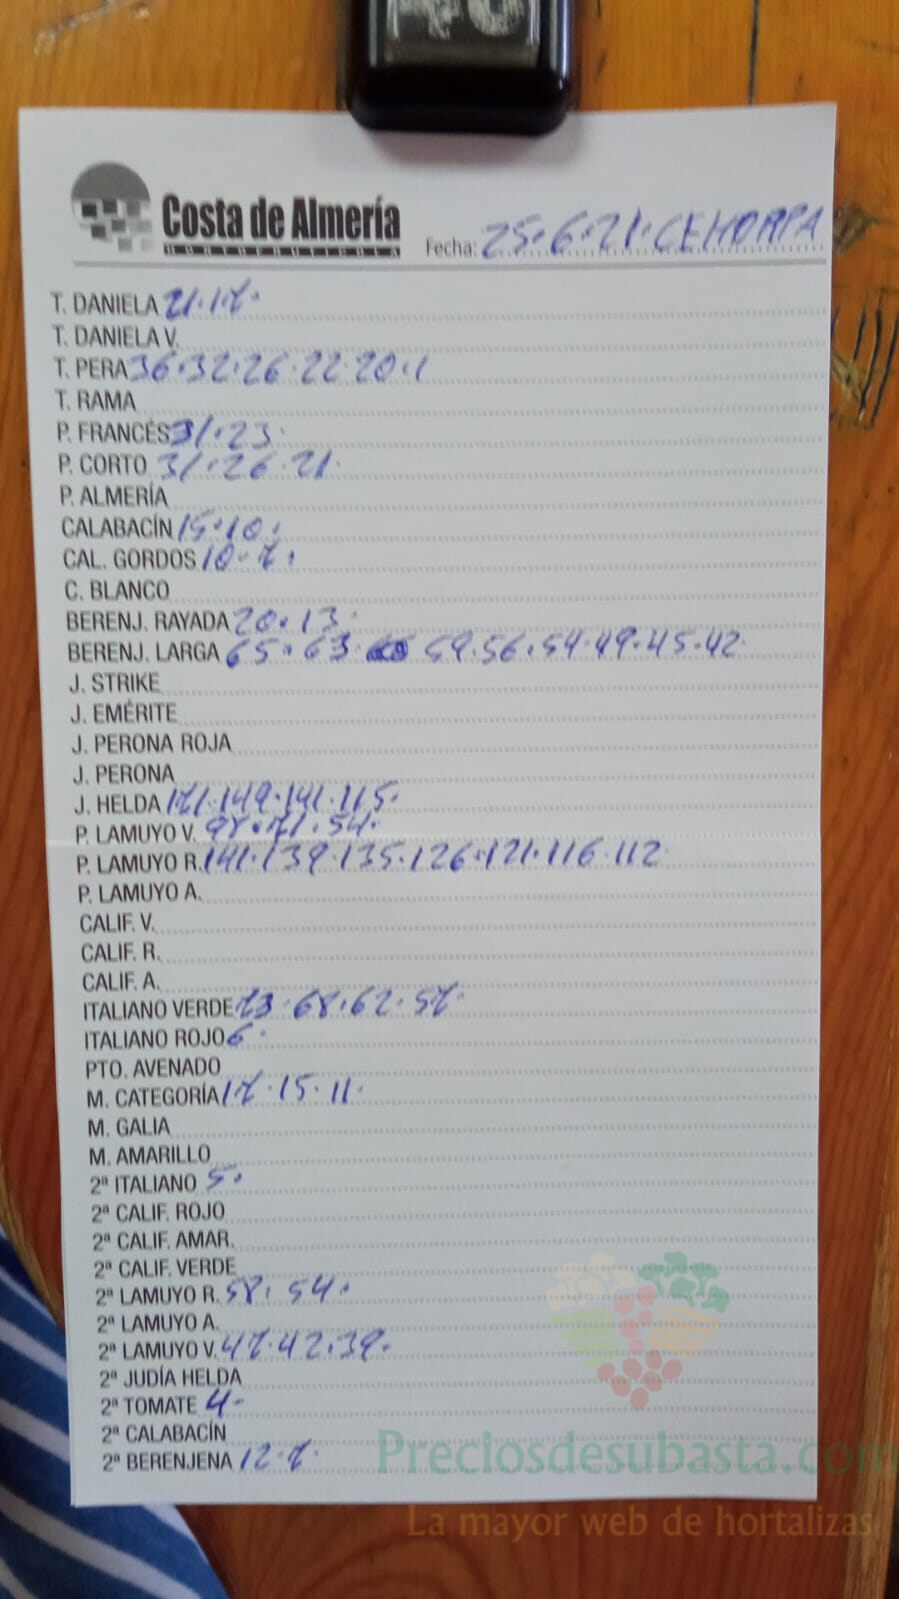 Costa de Almería
HORTOFRUTICOLA
Fecha: 25·6·21·CEHORPA
T. DANIELA 21·17·
T. DANIELA V.
T. PERA 36·32·26·22·20·1
T. RAMA
P. FRANCÉS 31·23·
P. CORTO 31·26·21·
P. ALMERÍA
CALABACÍN 15·10·
CAL. GORDOS 10·7·
C. BLANCO
BERENJ. RAYADA 20·13·
BERENJ. LARGA 65·63· 59·56·54·49·45·42
J. STRIKE
J. EMÉRITE
J. PERONA ROJA
J. PERONA
J. HELDA 171·149·141·115·
P. LAMUYO V. 98·71·54·
P. LAMUYO R. 141·139·135·126·121·116·112
P. LAMUYO A.
CALIF. V.
CALIF. R.
CALIF. A.
ITALIANO VERDE 73·68·62·57·
ITALIANO ROJO 6·
PTO. AVENADO
M. CATEGORÍA 17·15·11·
M. GALIA
M. AMARILLO
2ª ITALIANO 5·
2ª CALIF. ROJO
2ª CALIF. AMAR.
2ª CALIF. VERDE
2ª LAMUYO R. 58·54·
2ª LAMUYO A.
2ª LAMUYO V. 47·42·39·
2ª JUDÍA HELDA
2ª TOMATE 4·
2ª CALABACÍN
2ª BERENJENA 12·7·
Preciosdesubasta.com
La mayor web de hortalizas